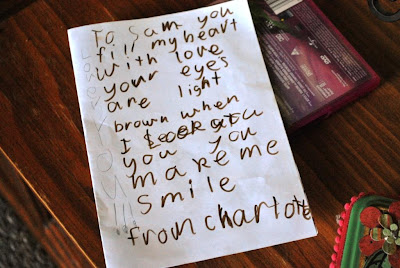 To Sam you
fill my heart
with love
your eyes
are light
brown when
I Look at u
you you
make me
smile
from charlotte